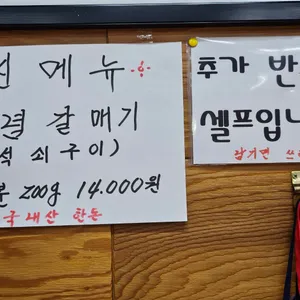 메뉴
결 갈매기
석쇠구이)
200g 14.000원
국내산 한돈
추가 반
셀프입니